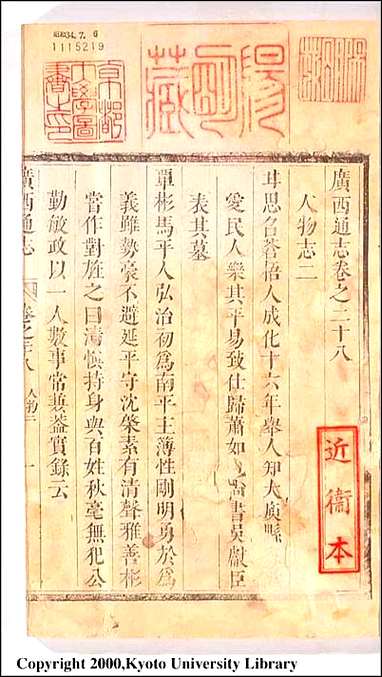 昭和34.7.6
1115219
京都
大學圖
書之印
陽
明
藏
近衞本
廣西通志卷之二十八
人物志二
甘思名蒼梧人成化十六年舉人知大庾縣
愛民人樂其平易致仕歸蕭如也尚書吳獻臣
表其墓
覃彬馬平人弘治初爲南平主薄性剛明勇於爲
義雖勢豪不避延平守沈棨素有清聲雅善彬
嘗作對旌之曰清愼持身與百姓秋毫無犯公
勤敏政以一人數事常兼蓋實錄云
廣西通志
卷之二十八
人物二
一
Copyright 2000,Kyoto University Library